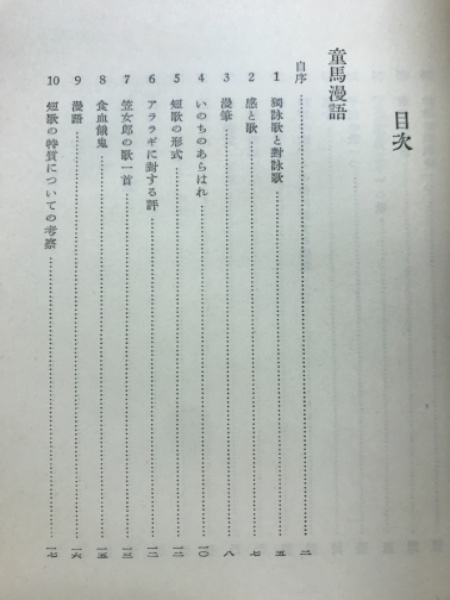 目次
童馬漫語
自序…二
1 獨詠歌と對詠歌…五
2 感と歌…七
3 漫筆…八
4 いのちのあらはれ…一〇
5 短歌の形式…一二
6 アララギに對する評…一二
7 笠女郎の歌一首…一三
8 食血餓鬼…一五
9 漫語…一六
10 短歌の特質についての考察…一七